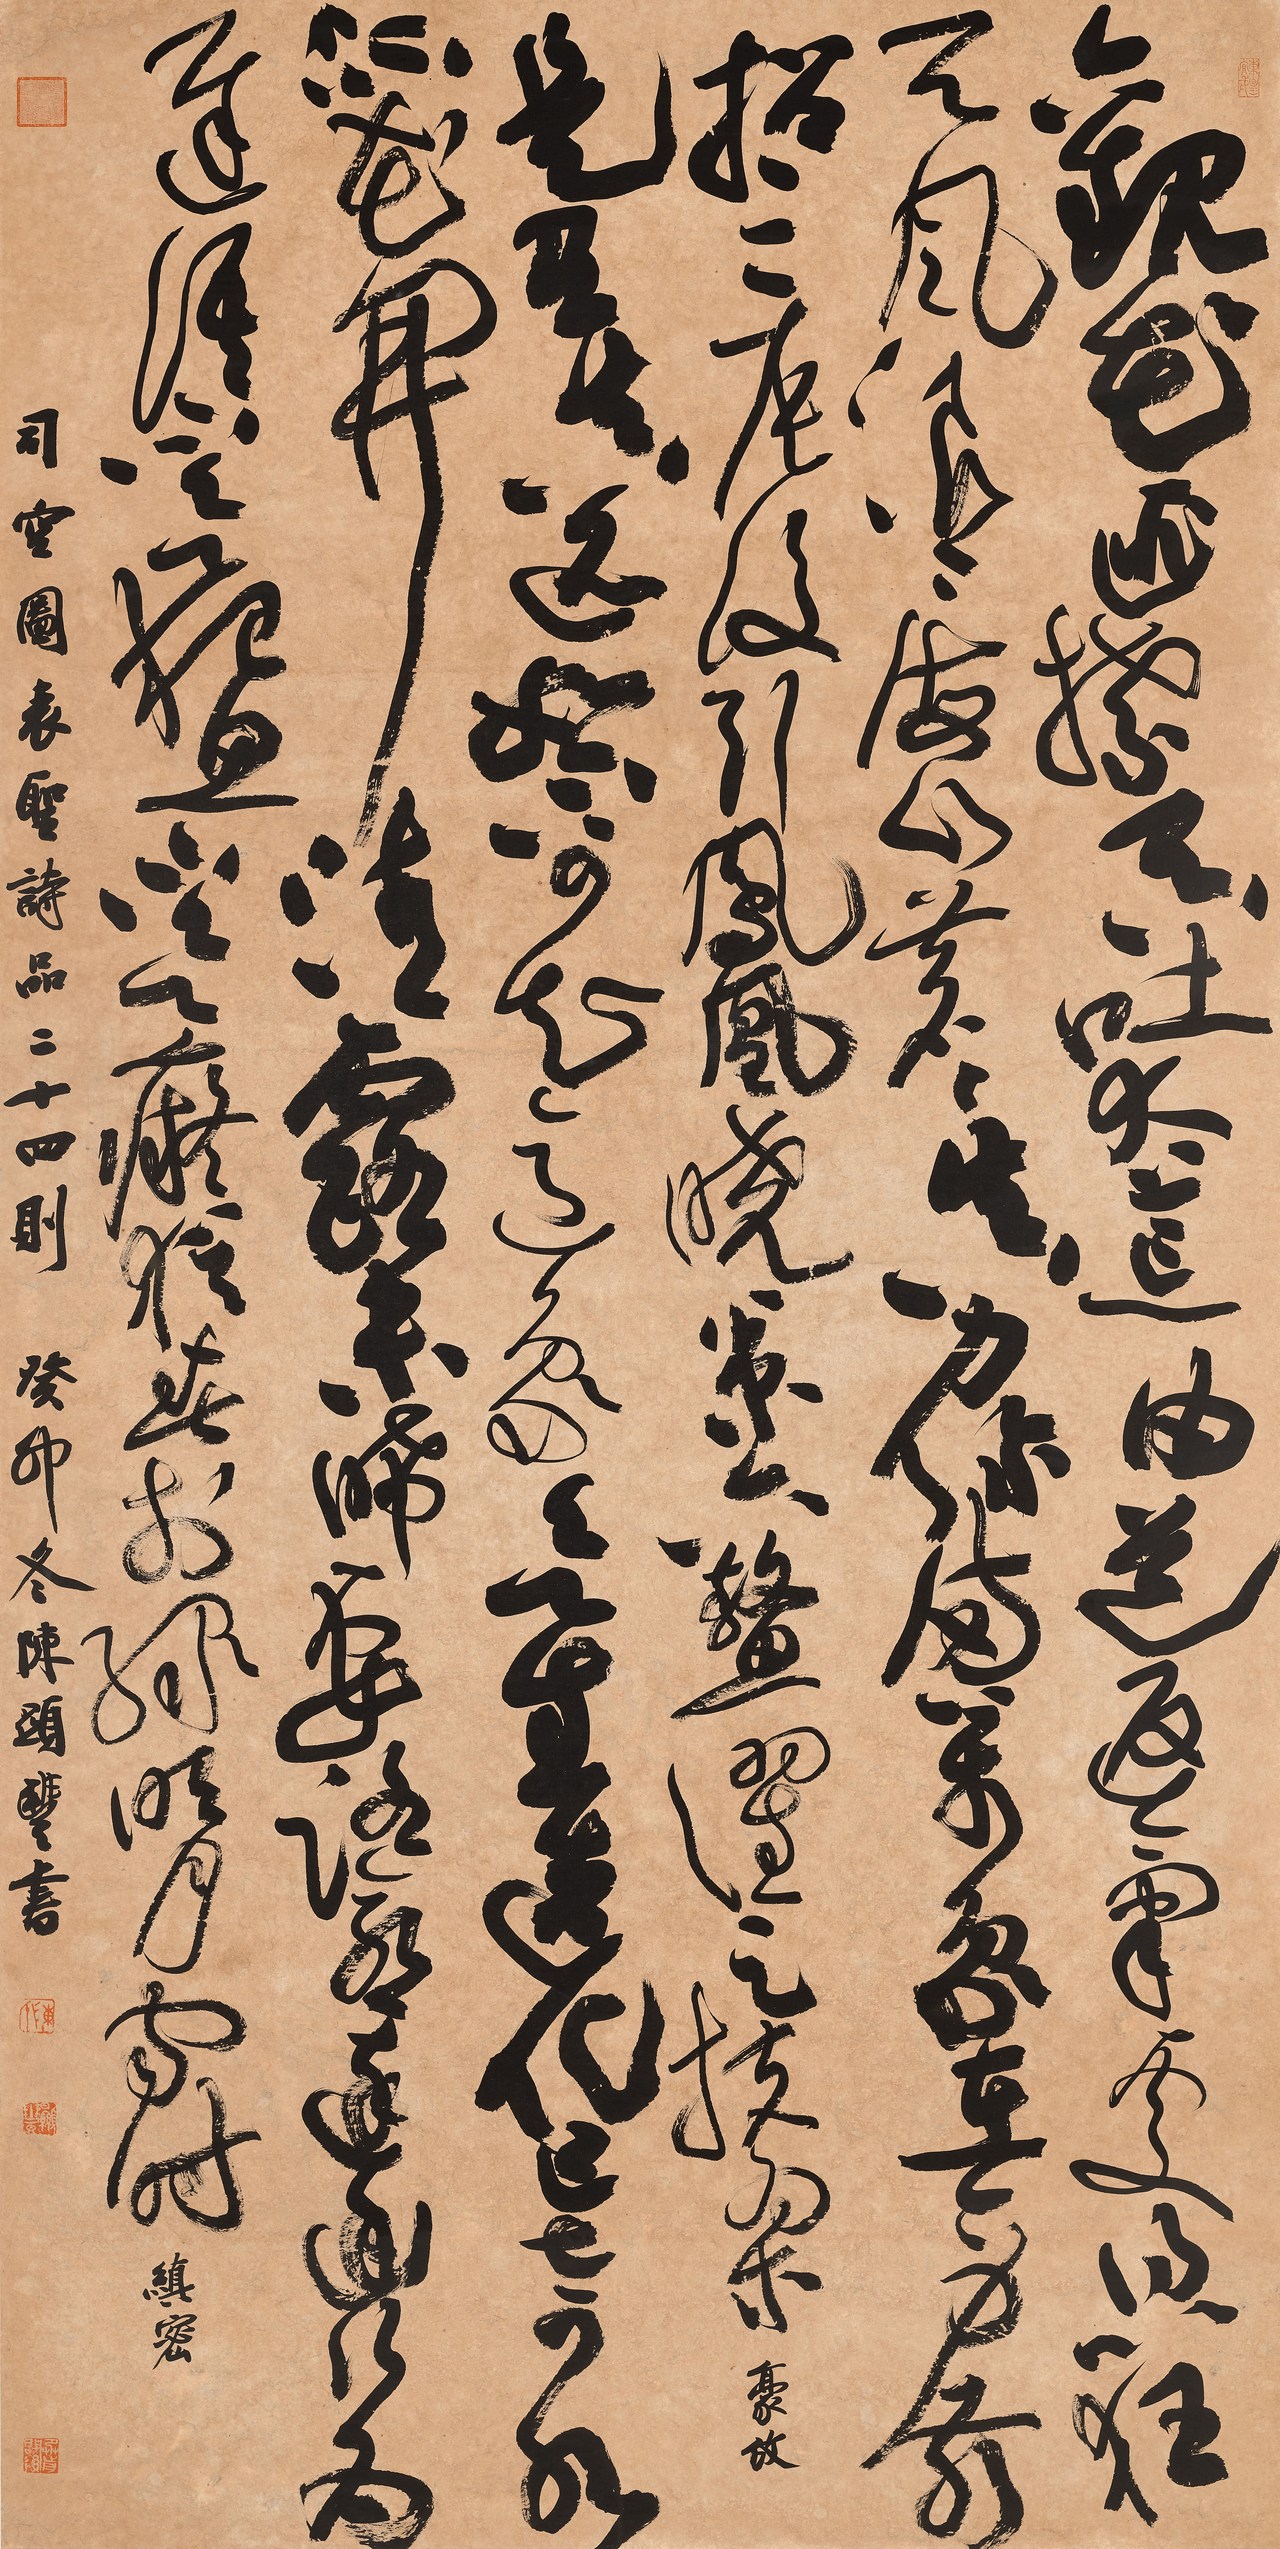 觀花匪禁吞吐大荒由道返氣處得以狂
天風浪浪海山蒼蒼真力彌滿萬象在旁前
招三辰後引鳳凰曉策六鰲濯足扶桑 豪放
是有真迹如不可知意象欲生造化已奇水
流花開清露未晞要路愈遠幽行為
遲語不欲犯思不欲癡猶春於綠明月雪時 縝密
司空圖表聖詩品二十四則 癸卯冬陳豐書